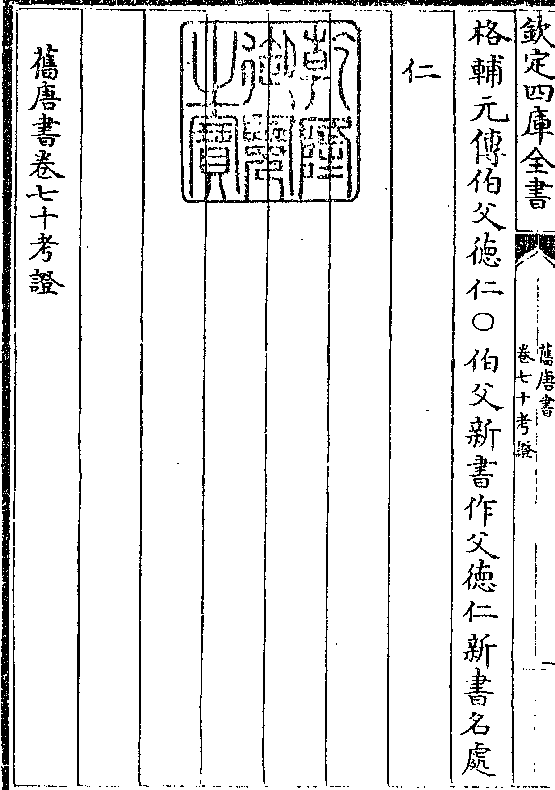 欽定四庫全書
舊唐書
卷七十考證
一
格輔元傳伯父徳仁○伯父新書作父徳仁新書名處
仁
乾隆御覽之寶
舊唐書卷七十考證